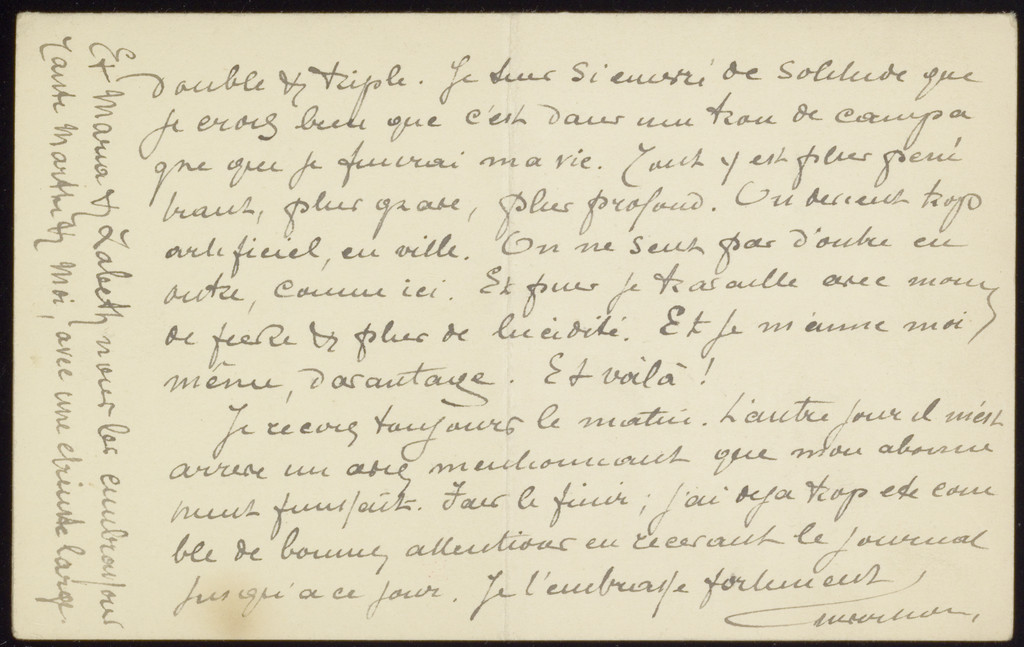 double & triple. Je suis si enivré de solitude que
je crois bien que c'est dans un trou de campa
gne que je finirai ma vie. Tout y est plus péné
trant, plus grave, plus profond. On devient trop
artificiel, en ville. On ne sent pas d'outre en
outre, comme ici. Et puis je travaille avec moins
de fièvre & plus de lucidité. Et je m'aime moi
même, davantage. Et voilà !
Je reçois toujours le matin. L'autre jour il m'est
arrivé un avis mentionnant que mon abonne
ment finissait. Fais le finir ; j'ai déjà trop été com
blé de bonnes attentions en recevant le journal
jusqu'à ce jour. Je t'embrasse fortement
Et Maria & Zabeth nous les embrassons
Tante Marthe & Moi, avec une étreinte large